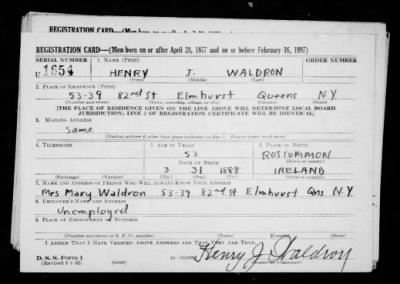 REGISTRATION CARD—(Men born on or after April 28, 1877 and on or before February 16, 1897)
SERIAL NUMBER 1. NAME (Print) ORDER NUMBER
U 1654 HENRY J. WALDRON
(First) (Middle) (Last)
2. PLACE OF RESIDENCE (Print)
53-39 82nd St Elmhurst Queens N.Y.
(Number and street) (Town, township, village, or city) (County) (State)
[THE PLACE OF RESIDENCE GIVEN ON THE LINE ABOVE WILL DETERMINE LOCAL BOARD
JURISDICTION; LINE 2 OF REGISTRATION CERTIFICATE WILL BE IDENTICAL]
3. MAILING ADDRESS
Same
[Mailing address if other than place indicated on line 2. If same insert word same]
4. TELEPHONE 5. AGE IN YEARS 6. PLACE OF BIRTH
53 ROSCUMMON
DATE OF BIRTH
3 31 1888 IRELAND
7. NAME AND ADDRESS OF PERSON WHO WILL ALWAYS KNOW YOUR ADDRESS
Mrs Mary Waldron 53-39 82nd St Elmhurst Qns N.Y.
8. EMPLOYER'S NAME AND ADDRESS
Unemployed
9. PLACE OF EMPLOYMENT OR BUSINESS
(Number and street or R. F. D. number) (Town) (County) (State)
I AFFIRM THAT I HAVE VERIFIED ABOVE ANSWERS AND THAT THEY ARE TRUE.
D. S. S. Form 1
(Revised 4-1-42)
Henry J. Waldron